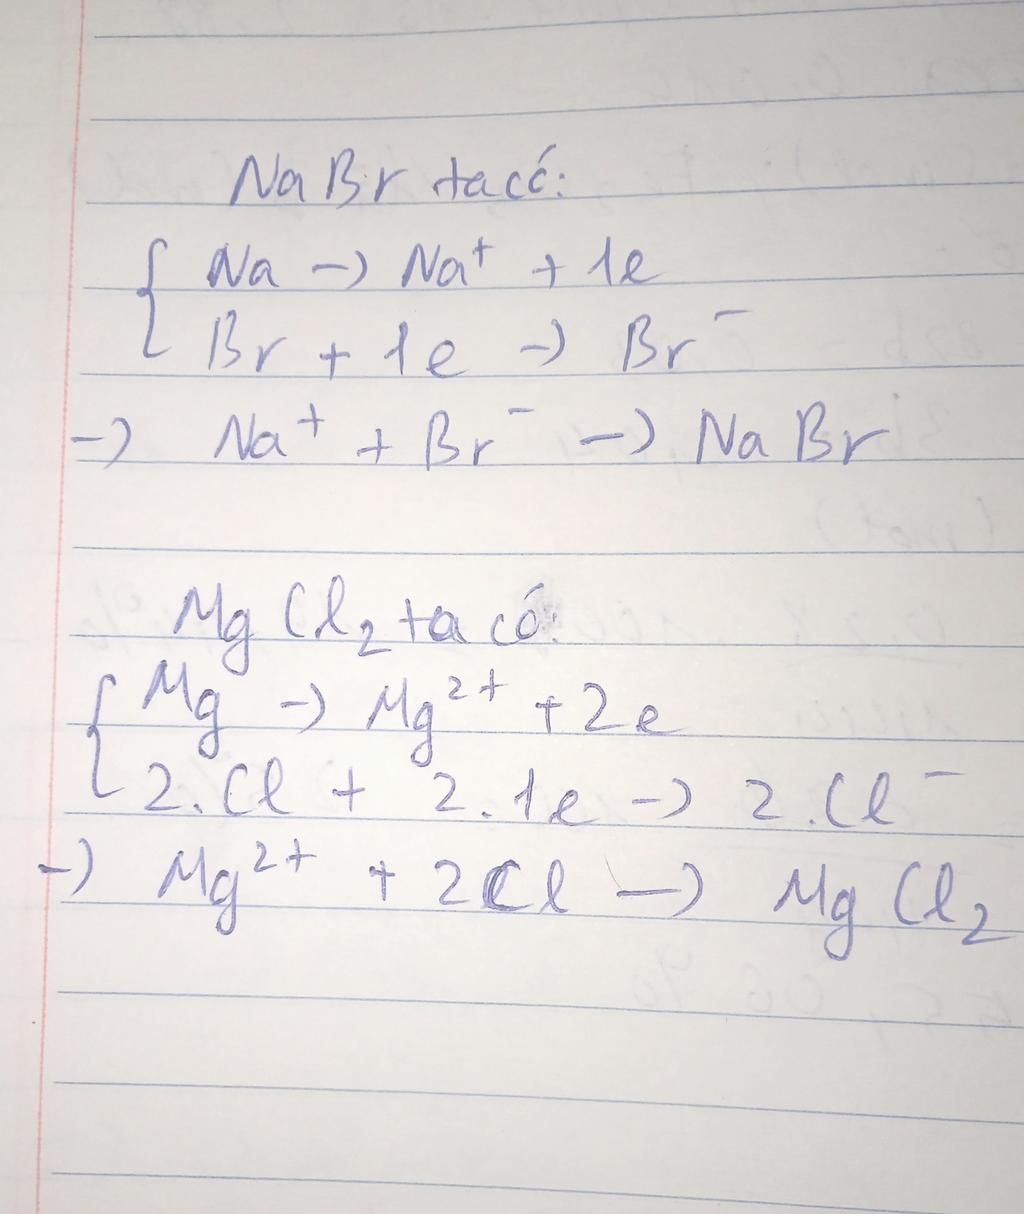 NaBr ta có:
Na -> Na⁺ + 1e
Br + 1e -> Br⁻
-> Na⁺ + Br⁻ -> NaBr
MgCl₂ ta có:
Mg -> Mg²⁺ + 2e
2.Cl + 2.1e -> 2.Cl⁻
-> Mg²⁺ + 2Cl -> MgCl₂